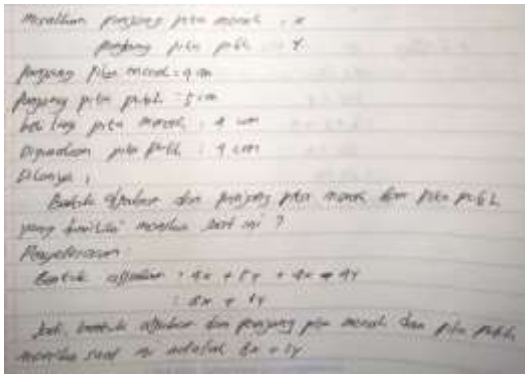 Misalkan panjang pita merah : x
panjang pita putih : Y
panjang pita merah = 4 m
panjang pita putih = 5 m
beli lagi pita merah : 4 cm
Digunakan pita putih : 4 cm
Ditanya :
Bentuk aljabar dan panjang pita merah dan pita putih
yang dimiliki monika saat ini ?
Penyelesaian :
Bentuk aljabar : 4x + 5y + 4x + 4y
: 8x + 1y
Jadi, bentuk aljabar dan panjang pita merah dan pita putih
monika saat ini adalah 8x + 1y